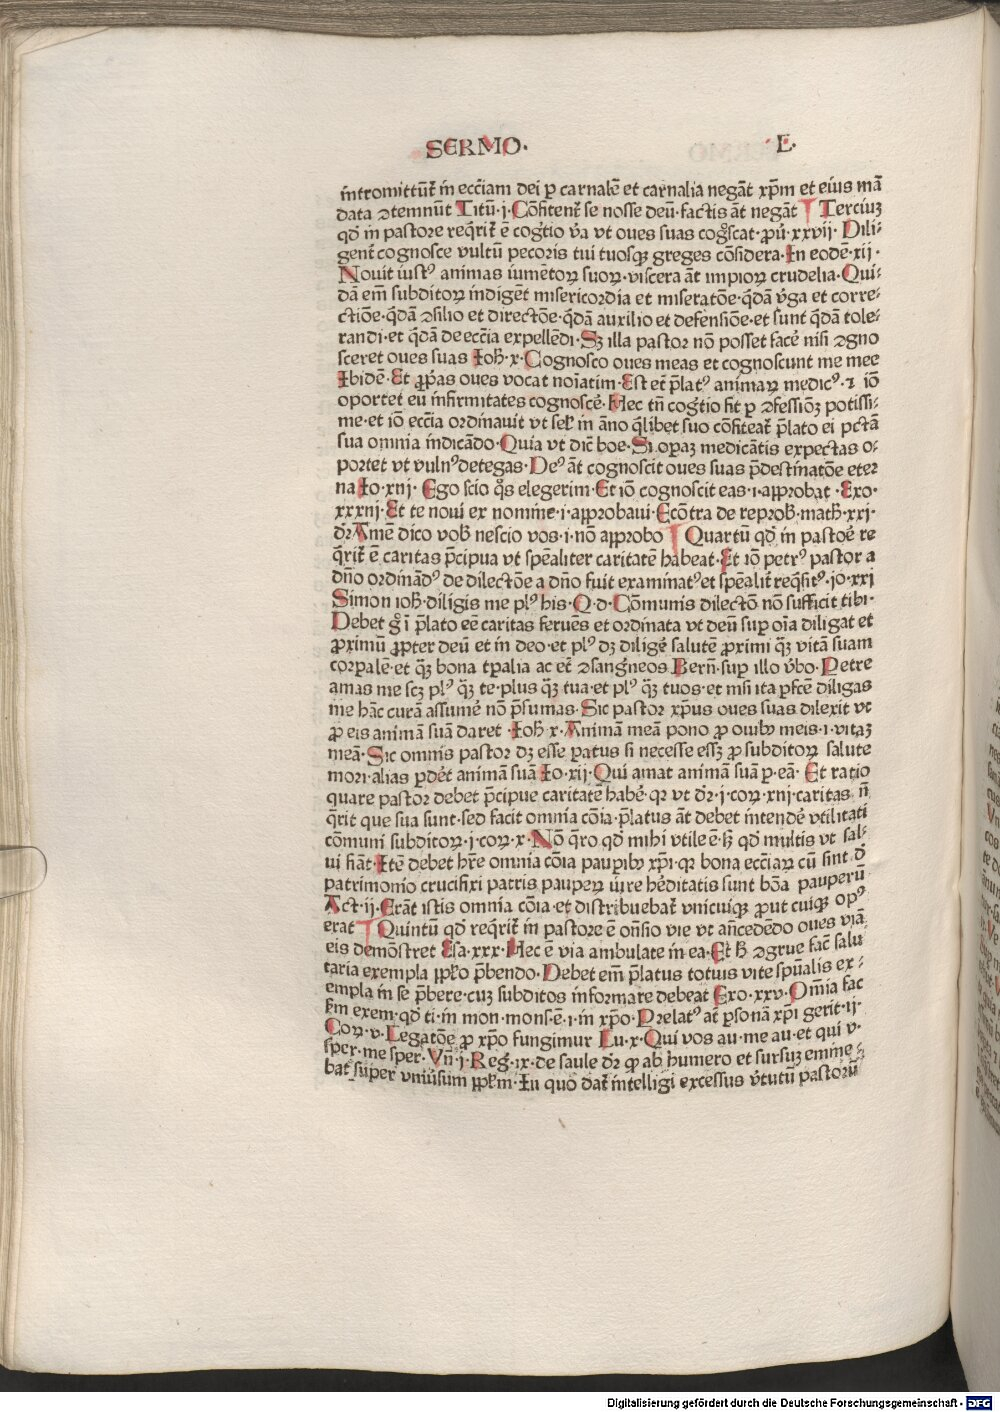 SERMO. .L.
intromittūt᷑ in eccl̄iam dei ꝑ carnalē et carnalia negāt xp̄m et eius mā
data ↄtemnūt Titū·j·Cōfitent᷑ se nosse deū·factis āt negāt ¶ Terciuꝫ
qd̓ in pastore req̄rit᷑ ē cog̓tio v̓a vt oues suas cog̓scat·ꝓu̓·xxvij· Dili⸗
gent᷑ cognosce vultū pecoris tui tuosqꝫ greges cōsidera·In eodē·xij·
Nouit iustꝰ animas iumētoꝝ suoꝝ·viscera āt impioꝝ crudelia·Qui⸗
dā em̄ subditoꝝ indigēt misericordia et miseratōe·q̄dā v̓ga et corre⸗
ctiōe·q̄dā ↄsilio et directōe·q̄dā auxilio et defensiōe·et sunt q̄dā tole⸗
randi·et q̄dā de eccl̄ia expellēdi·Sꝫ illa pastor nō posset facē nisi ↄgno
sceret oues suas Ioh̄·x·Cognosco oues meas et cognoscunt me mee
Ibidē·Et ꝓp̄as oues vocat noīatim·Est et̄ p̄latꝰ animaꝝ medicꝰ·⁊ iō
oportet eu infirmitates cognoscē·Hec tn̄ cog̓tio fit ꝑ ↄfessiōꝫ potissi⸗
me·et iō eccl̄ia ordinauit vt sel̓ in āno q̄libet suo cōfiteat᷑ p̄lato ei pctā
sua omnia indicādo·Quia vt dic̄ boe·Si opaꝫ medicātis expectas o⸗
portet vt vulnꝰ detegas·Deꝰ āt cognoscit oues suas p̄destinatōe eter
na Io·xnj· Ego scio q̄s elegerim·Et iō cognoscit eas·i·approbat ·Exo·
xxxnj·Et te noui ex nomine·i·approbaui·Ecōtra de reprob̄·math̄·xxj·
dr̄ Amē dico vob̄ nescio vos·i·nō approbo ¶ Quartū qd̓ in pastoē re
q̄rit᷑ ē caritas p̄cipua vt spēaliter caritatē habeat·Et iō petrꝰ pastor a
dn̄o ordinādꝰ de dilectōe a dn̄o fuit examinatꝰ et spēalit᷑ req̄sitꝰ·jo·xxj
Simon ioh̄·diligis me plꝰ his·Q·d·Cōmunis dilectō nō sufficit tibi·
Debet g̊ ī p̄lato eē caritas feruēs et ordinata vt deū suꝑ oīa diligat et
ꝓximū ꝓpter deū et in deo·et plꝰ dꝫ diligē salutē ꝓximi q̄ꝫ vitā suam
corpalē·et q̄ꝫ bona tꝑalia ac et̄ ↄsangneos Bern̄·suꝑ illo v̓bo·Petre
amas me scꝫ plꝰ q̄ꝫ te·plus q̄ꝫ tua·et plꝰ q̄ꝫ tuos·et nisi ita ꝑfcē diligas
me hāc curā assumē nō p̄sumas·Sic pastor xp̄us oues suas dilexit vt
ꝓ eis animā suā daret ·Ioh̄ x·Animā meā pono ꝓ ouibꝫ meis·i·vitaꝫ
meā·Sic omnis pastor dꝫ esse ꝑatus si necesse essꝫ ꝓ subditoꝝ salute
mori·alias ꝑdet᷑ animā suā Io·xij·Qui amat animā suā ꝑ·eā· Et ratio
quare pastor debet p̄cipue caritatē habē·qꝛ vt dr̄·j·coꝝ·xnj·caritas n̄
q̄rit que sua sunt·sed facit omnia cōia·p̄latus āt debet intendē vtilitati
cōmuni subditoꝝ·j·coꝝ·x·Nō q̄ro qd̓ mihi vtile ē·sꝫ qd̓ multis vt sal⸗
ui fiāt·Itē debet hr̄e omnia cōia pauꝑibꝫ xp̄i·qꝛ bona eccl̄iaꝝ cū sint d̓
patrimonio crucifixi patris pauꝑeꝝ iure hēditatis sunt bōa pauperū
Act·ij·Erāt istis omnia cōia·et distribuebat᷑ vnicuiqꝫ ꝓut cuiqꝫ opꝰ
erat ¶ Quintū qd̓ req̄rit᷑ in pastore ē on̄sio vie vt an̄cedēdo oues viā
eis demōstret Esa·xxx·Hec ē via ambulate in ea·Et h̄ ↄgrue fac̄ salu
taria exempla ꝓp̄lo p̄bendo·Debet em̄ p̄latus totuis vite spūalis ex⸗
empla in se p̄bere·cuꝫ subditos informare debeat Exo·xxv·Om̄ia fac
s̄m exem·qd̓ ti·in mon·mons·ē·i·in xp̄o·Prelatꝰ at᷑ ꝑsonā xp̄i gerit·ij·
Coꝝ·v·Legatōe ꝓ xp̄o fungimur Lu·x·Qui vos au·me au·et qui v·
sper·me sper·Vn̄·j·Reg̓·ix·de saule dr̄ ꝙ ab humero et sursuꝫ emine⸗
bat super vniūsum ꝓp̄lm·In quo dat᷑ intelligi excessus v̓tutū pastorū
Digitalisierung gefördert durch die Deutsche Forschungsgemeinschaft - DFG